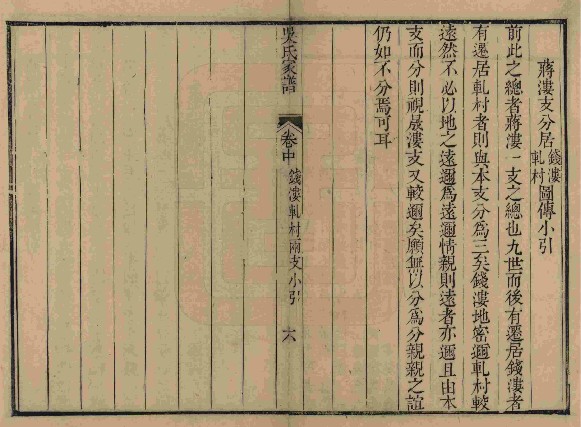 蔣漊支分居錢漊軋村圖傳小引
前此之總者蔣漊一支之總也九世而後有遷居錢漊者
有遷居軋村者則與本支分爲三矣錢漊地密邇軋村較
遠然不必以地之遠邇爲遠邇情親則遠者亦邇且由本
支而分則視晟漊支又較邇矣願無以分爲分親親之誼
仍如不分焉可耳
吳氏家譜
卷中
錢漊軋村兩支小引
六